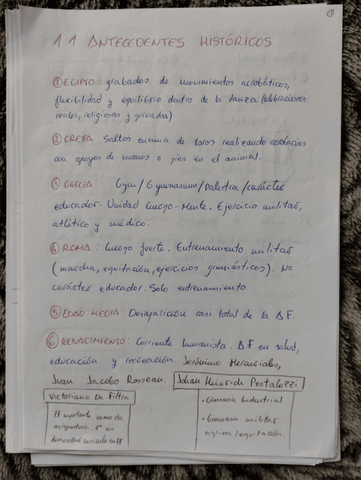 1
1.1 ANTECEDENTES HISTÓRICOS
① EGIPTO: grabados de movimientos acrobáticos,
flexibilidad y equilibrio dentro de la danza (celebraciones
reales, religiosas y privadas)
② CRETA: Saltos encima de toros realizando acrobacias
con apoyos de manos o pies en el animal.
③ GRECIA: Gym / Gymnasium / Palestra / carácter
educador. Unidad Cuerpo-Mente. Ejercicio militar,
atlético y médico.
④ ROMA: Cuerpo fuerte. Entrenamiento militar
(marcha, equitación, ejercicios gimnásticos). No
carácter educador. Solo entrenamiento.
⑤ EDAD MEDIA: Desaparición casi total de la AF.
⑥ RENACIMIENTO: Corriente humanista. AF en salud,
educación y recreación. Jerónimo Mercuriales,
Juan Jacobo Rosseau. Johan Heinrich Pestalozzi
Victoriano Da Filtra
Ef importante como de
asignatura. 1º en
demostrar
• Gimnasia Industrial
• Gimnasia militar
esgrima/equitación.